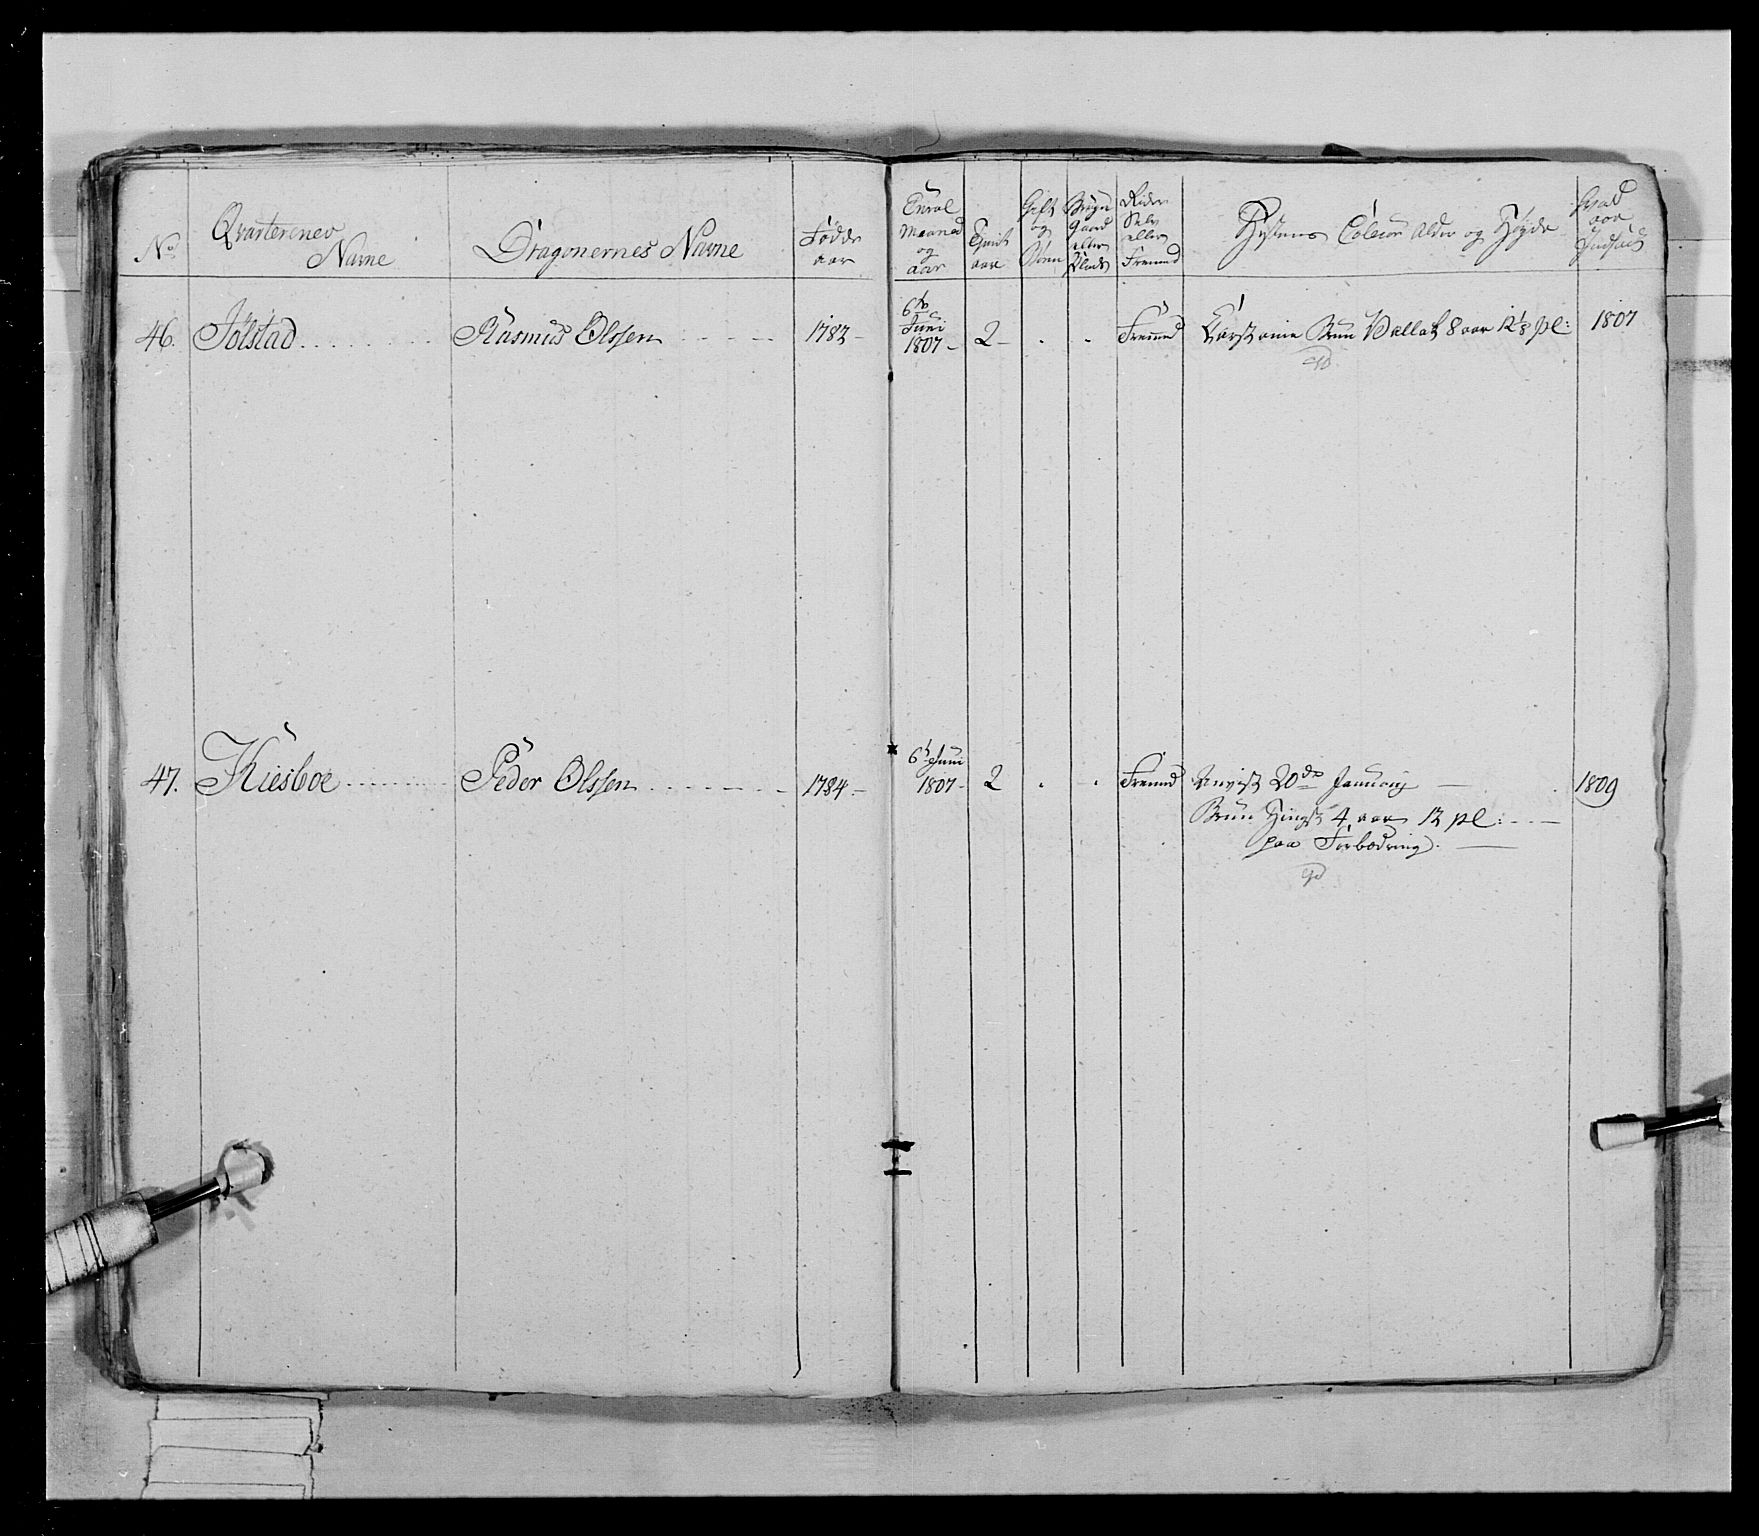 No
Qvarterenes
Navne
Dragonernes Navne
Fødde
aar
Enrol
Maaned
og
aar
Tjenst
aar
Gift
og
Børn
Gaard
eller
Plads
Rider
Selv
eller
Fremmed
Hestens Coleur Alder og Høyde
Hvad
aar
Indsadt
46. Jølstad Rasmus Olssen 1782 6te Juni 1807 2 Fremmed Brun Vallak 8 aar 12 1/8 pl: 1807
47. Kiesboe Peder Olssen 1784 6t Juni 1807 2 Fremmed 20de Januarij 1809
Brun Hingst 4 aar 12 pl:
paa Forbedring.